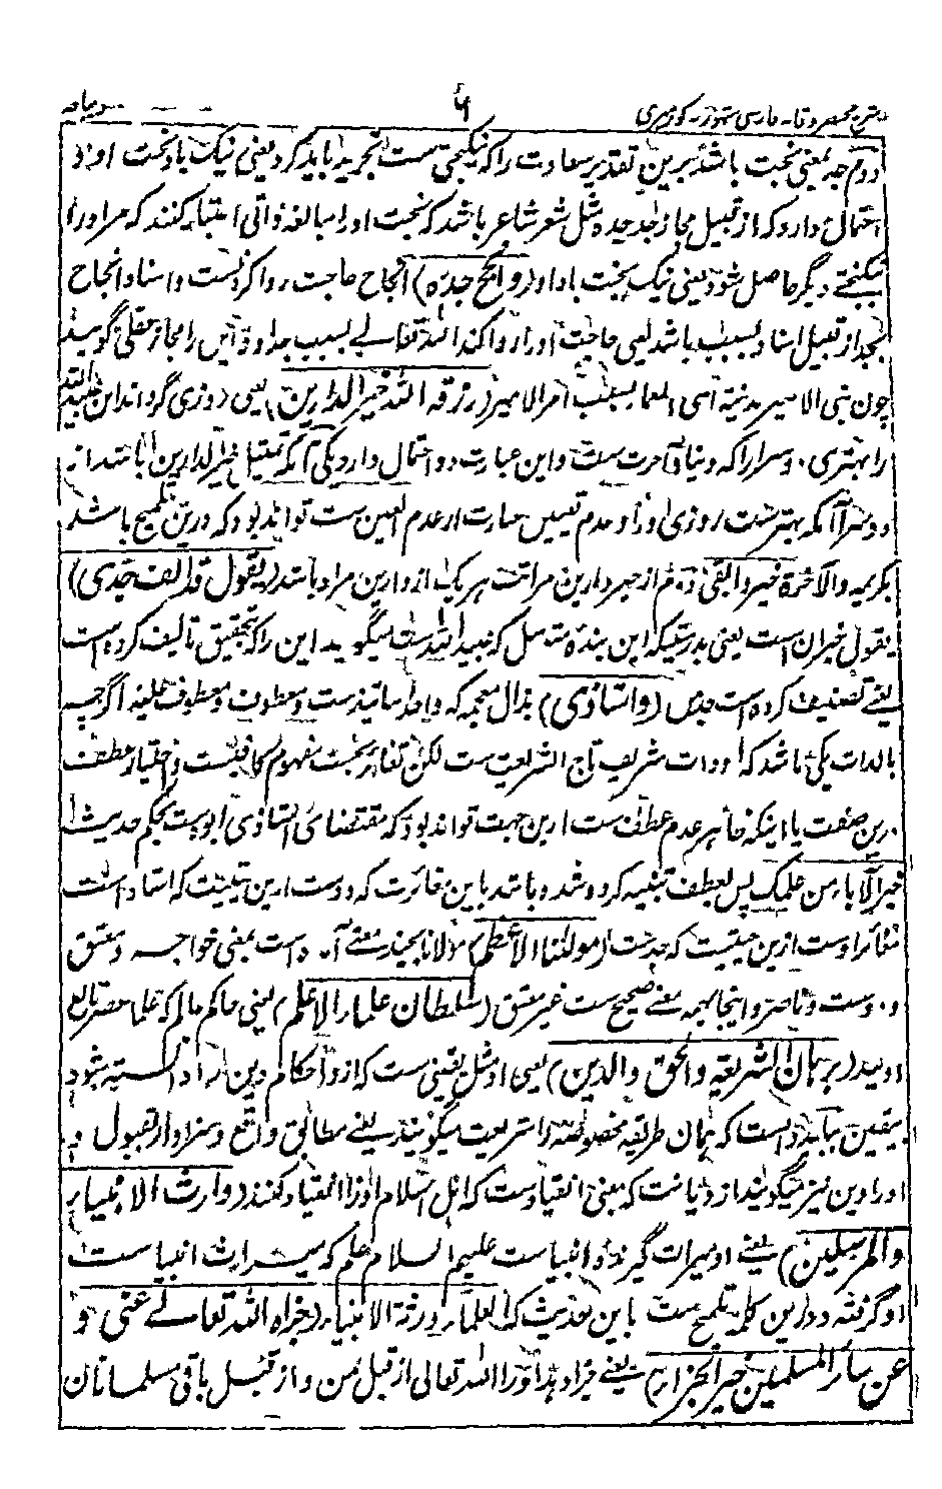 شرح مختصر وقایه فارسی
۶
دیباچه
دوم جد بمعنی بخت باشد برین تقدیر سعادت را که نیکبختی ست تجرید باید کرد یعنی نیک باد بخت او و
احتمال دارد که از قبیل مجاز جد جده مثل شعر شاعر باشد که بخت او را مبالغه ذاتی اعتبار کنند که مر او را
نیکبختی دیگر حاصل شود یعنی نیک بخت باد او (و انجح جده) انجاح حاجت روا کردنست و اسناد انجاح
بجد از قبیل اسناد بسبب باشد یعنی حاجت او را روا کند الله تعالے بسبب جد او و این را مجاز عقلی گویند
چون بنی الامیر مدینة ای المعمار بسبب امر الامیر (رزقه الله خیر الدارین) یعنی روزی گرداند این
را بهتری دو سرا را که دنیا و آخرت ست و این عبارت دو احتمال دارد یکی آنکه خیر الدارین باشد از
و دیگر آنکه بهترست روزی او را و عدم تعیین عبارت از عدم تعین ست تواند بود که درین تلمیح باشد
بکریمه والآخرة خیر وابقی از خیر دارین مراتب هر یک از دارین مراد باشد (یقول قد الف جدی)
یقول خبر ان است یعنی بدرستیکه این بنده متوسل که عبید الله است میگوید این را که بتحقیق تالیف کرده است
یعنے تصنیف کرده است جد من (واستاذی) بذال معجمه که واحد اساتیذ ست و معطوف و معطوف علیه اگرچه
بالذات یکی باشد که او ذات شریف تاج الشریعت ست لکن تغایر بحسب مفهوم کافیست و اختیار عطف
درین صفت با اینکه ظاهر عدم عطف ست ازین جهت تواند بود که مقتضای استاذی ابوت ست بحکم حدیث
خیر الآباء من علمک پس بعطف تنبیه کرده شده باشد باین مغایرت که دوست ازین حیثیت که استاد است
مغائر اوست ازین حیثیت که جد ست (مولٰنا الاعظم) مولانا بچند معنے آمده است بمعنی خواجه و معتق
و دوست و ناصر و اینجا همه معنے صحیح ست غیر معتق (سلطان علماء الاعلم) یعنی حاکم عالم که علما مصر تابع
اویند (برهان الشریعة والحق والدین) یعنی او مثل یقینی ست که ازو احکام دین را دانسته شود
بیقین بباید دانست که همان طریقه مخصوصه را شریعت میگویند یعنے مطابق واقع و سزاوار قبول و
او را دین نیز میگویند از دیانت که بمعنی انقیادست که اهل اسلام او را انقیاد کنند (وارث الانبیاء
والمرسلین) یعنے او میراث گیرنده انبیاست علیهم السلام علم که میراث انبیاست
او گرفته و درین کلمه تلمیح ست باین حدیث که العلماء ورثة الانبیاء (جزاه الله تعالے عنی و
عن سائر المسلمین خیر الجزاء) یعنے جزا دهد او را الله تعالی از قبل من و از قبل باقی مسلمانان